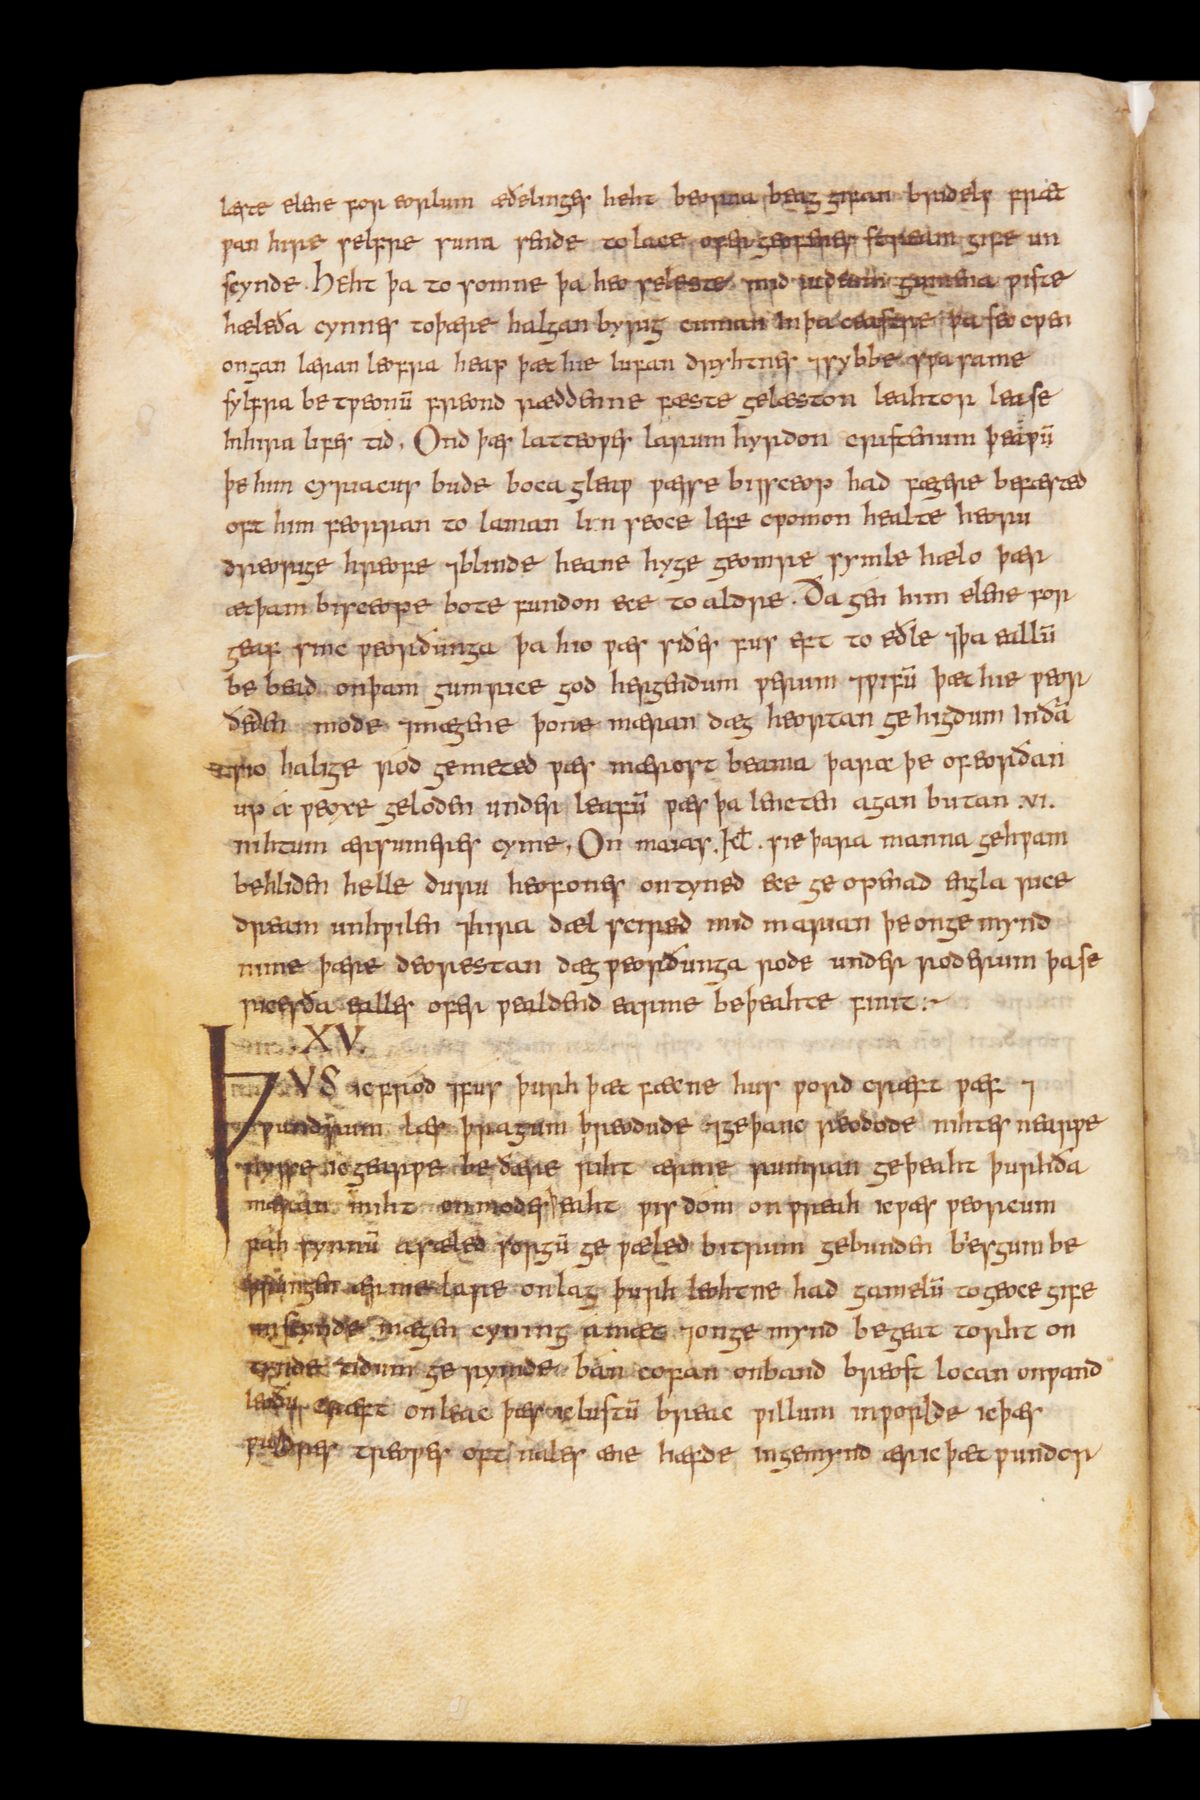 læste elene for eorlum æðelinges heht beorna beag gifan bridels fræt
pan hire selfre suna sende to lace ofer geofenes stream gife un
scynde. Heht þa to somne þa heo seleste mid iudeum gumena ƿiste
hæleða cynnes toþære halgan byrig cuman inþa ceastre þa seo cƿen
ongan læran leofra heap þæt hie lufan dryhtnes ⁊sybbe sƿa same
sylfra be tƿeonū freond ræddenne fæste gelæston leahtor lease
inhira lifes tid. Ond þæs latteoƿes larum hyrdon cristenum þeaƿū
þe him cyriacus bude boca gleaƿ ƿæs se bissceop had fægere befæsted
oft him feorran to laman lim seoce lefe cƿomon healte heoru
dreorige hreofe ⁊blinde heane hyge geomre symle hælo þær
ætþam biscope bote fundon ece to aldre. Ða gen him elene for
geaf sinc ƿeorðunga þa hio ƿæs siðes fus eft to eðle ⁊þa eallū
be bead onþam gumrice god hergendum ƿerum ⁊ƿifū þæt hie ƿeor
ðeden mode ⁊mægene þone mæran dæg heortan gehigdum in ðā
sio halige rod gemeted ƿæs mærost beama þara þe of eorðan
up a ƿeoxe geloden under leafū ƿæs þa lencten agan butan .VI.
nihtum ær sumeres cyme. On maias .kł. sie þara manna gehƿam
behliden helle duru heofones ontyned ece ge openad engla rice
dream unhƿilen ⁊hira dæl scired mid marian þe onge mynd
nime þære deorestan dæg ƿeorðunga rode under roderum þa se
ricesða ealles ofer ƿealdend earme beþeahte finit :~
XV.
ÞVS ic frod ⁊fus þurh þæt fæcne hus ƿord cræft ƿæf ⁊
ƿundrum læs þragum þreodude ⁊geþanc reodode nihtes nearƿe
nysse ic gearƿe be ðære riht ær me rumran geþeaht þurh ða
mæran miht on modes þeaht ƿisdom on ƿreah ic ƿæs ƿeorcum
fah synnū asæled sorgū ge ƿæled bitrum gebunden besgum be
þrungen ær me lare onlag þurh leohtne had gamelū to geoce gife
unscynde mægen cyning amæt ⁊onge mynd begeat torht on
tynde tidum ge rymde ban cofan onband breost locan onƿand
leoðu cræft onleac þæs ic lustū breac ƿillum in ƿorlde ic þæs
ƿuldres treoƿes oft nales æne hæfde ingemynd ær ic þæt ƿundor